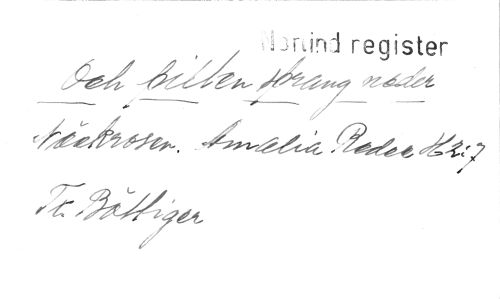 Norlind register
Och billen sprang neder
Näckrosen. Amalia Redec H2:7
Tr. Böttiger